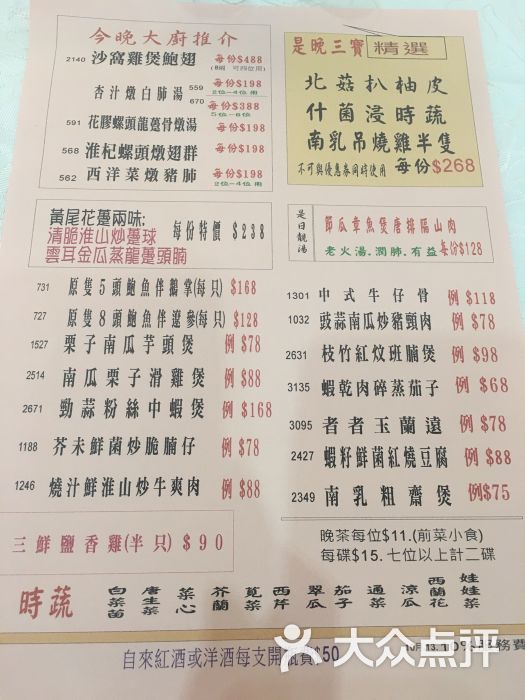 今晚大廚推介
2140 沙窩雞煲鮑翅 每份$488
(8鍋 可四位用)
杏汁燉白肺湯 559 每份$198
2位-4位 用
670 每份$388
5位-6位
591 花膠螺頭龍躉骨燉湯 每份$198
568 淮杞螺頭燉翅群 每份$198
562 西洋菜燉豬肺 每份$198
2位-4位 用
是晚三寶 精選
北菇扒柚皮
什菌浸時蔬
南乳吊燒雞半隻
不可與優惠券同時使用 每份$268
黃尾花躉兩味;
清脆淮山炒躉球
雲耳金瓜蒸龍躉頭腩
每份特價 $238
是日靚湯
節瓜章魚煲唐排隔山肉
老火湯.潤肺.有益 每份$128
731 原隻5頭鮑魚伴鵝掌(每只) $168
727 原隻8頭鮑魚伴遼參(每只) $128
1527 栗子南瓜芋頭煲 例 $78
2514 南瓜栗子滑雞煲 例 $88
2671 勁蒜粉絲中蝦煲 例 $168
1188 芥末鮮菌炒脆腩仔 例 $78
1246 燒汁鮮淮山炒牛爽肉 例 $88
1301 中式牛仔骨 例 $118
1032 豉蒜南瓜炒豬頸肉 例 $78
2631 枝竹紅炆班腩煲 例 $98
3135 蝦乾肉碎蒸茄子 例 $68
3095 者者玉蘭遠 例 $78
2427 蝦籽鮮菌紅燒豆腐 例 $88
2349 南乳粗齋煲 例$75
三鮮鹽香雞(半只) $90
晚茶每位$11.(前菜小食)
每碟$15.七位以上計二碟
時蔬 白菜苗 唐生菜 菜心 芥蘭 莧菜 西芹 翠瓜 茄子 通菜 涼瓜 西蘭花 娃娃菜
10%服務費
自來紅酒或洋酒每支開瓶費$50
大众点评